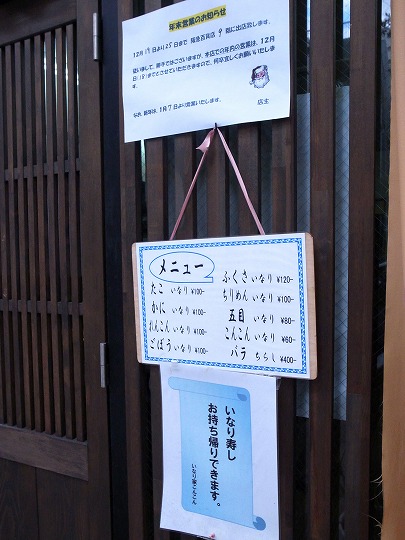 年末営業のお知らせ
12月19日より25日まで 阪急百貨店9階に出店致します。
従いまして、勝手ではございますが、本店での年内の営業は、12月
日(18)までとさせていただきますので、何卒宜しくお願いいたしま
す。
なお、新年は、1月7日より営業いたします。
店主
メニュー
たこ いなり ¥100-
かに いなり ¥100-
れんこん いなり ¥100-
ごぼう いなり ¥100-
ふくさ いなり ¥120-
ちりめん いなり ¥100-
五目 いなり ¥80-
こんこん いなり ¥60-
バラ ちらし ¥400-
いなり寿し
お持ち帰りできます。
いなり家こんこん